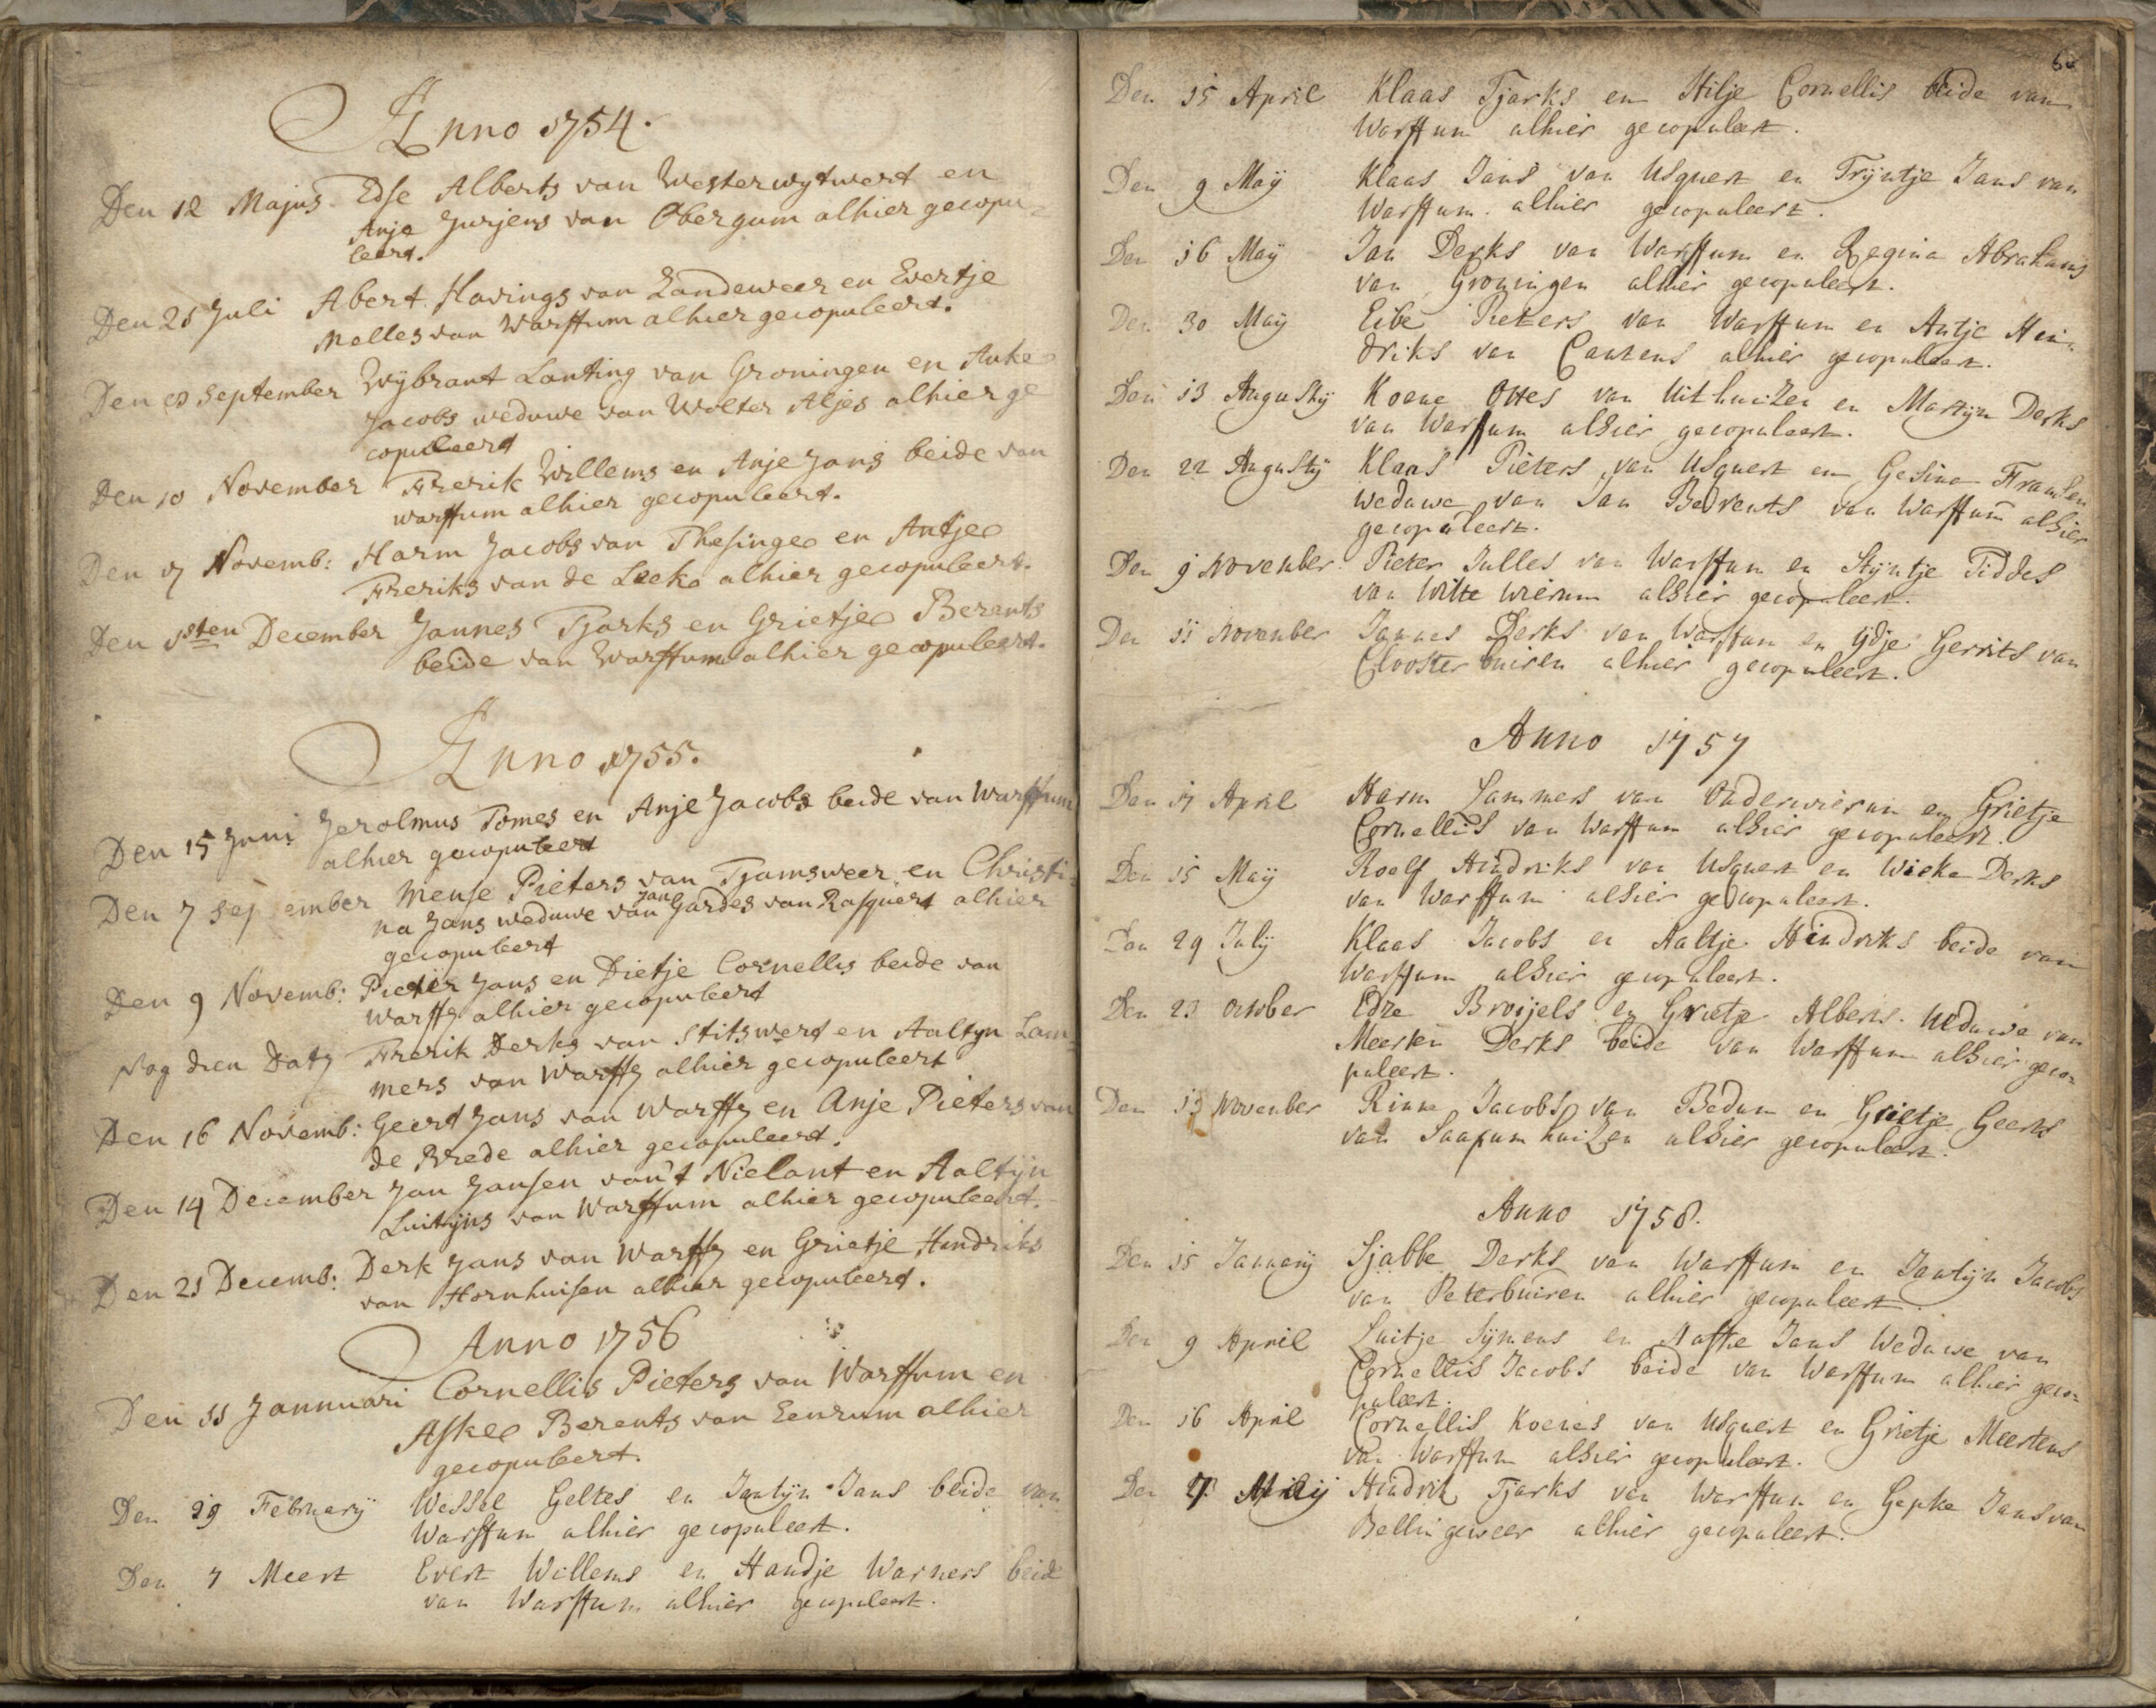 Anno 1754.
Den 12 Majus Edse Alberts van Westerwytwert en
Anje Jurjens van Obergum alhier gecopu=
leert.
Den 21 Juli Abert Havings van Zandeweer en Evertje
Melles van Warffum alhier gecopuleert.
Den 8 September Wybrant Lanting van Groningen en Anke
Jacobs weduwe van Wolter Aljes alhier ge
copuleert
Den 10 November Frerik Willems en Anje Jans beide van
warffum alhier gecopuleert.
Den 17 Novemb: Harm Jacobs van Thesinge en Antje
Freriks van de Leeke alhier gecopuleert.
Den 1sten December Jannes Tjarks en Grietje Berents
beide van Warffum alhier gecopuleert.
Anno 1755.
Den 15 Juni Jerolmus Tomes en Anje Jacobs beide van Warffum
alhier gecopuleert
Den 7 September Mense Pieters van Tjamsweer en Christi=
na Jans weduwe van Jan Gardes van Rasquert alhier
gecopuleert
Den 9 Novemb: Pieter Jans en Dietje Cornellis beide van
Warff alhier gecopuleert
Nog dien Dat Frerik Derks van Stitswert en Aaltyn Lam=
mers van Warff alhier gecopuleert
Den 16 Novemb: Geert Jans van Warff en Anje Pieters van
de Brede alhier gecopuleert.
Den 14 December Jan Jansen van't Nielant en Aaltijn
Luitijns van Warffum alhier gecopuleert.
Den 21 Decemb: Derk Jans van Warff en Grietje Hendriks
van Hornhuisen alhier gecopuleert.
Anno 1756
Den 11 Jannuari Cornellis Pieters van Warffum en
Aske Berents van Eenrum alhier
gecopuleert.
Den 29 Februarij Wessel Geltes en Jantijn Jans beide van
Warffum alhier gecopuleert.
Den 7 Meert Evert Willems en Handje Warners beide
van Warffum alhier gecopuleert.
Den 15 April Klaas Tjarks en Hilje Cornellis beide van
Warffum alhier gecopuleert.
Den 9 Maij Klaas Jans van Usquert en Trijntje Jans van
Warffum alhier gecopuleert.
Den 16 Maij Jan Derks van Warffum en Regina Abrahams
van Groningen alhier gecopuleert.
Den 30 Maij Eibe Pieters van Warffum en Antje Hein=
driks van Cantens alhier gecopuleert.
Den 13 Augustij Koene Ottes van Uithuizen en Martijn Derks
van Warffum alhier gecopuleert.
Den 22 Augustij Klaas Pieters van Usquert en Gesina
Weduwe van Jan Bedrents van Warffum alhier
gecopuleert.
Den 9 November Pieter Julles van Warffum en Stijntje Tiddes
van Witte wierum alhier gecopuleert.
Den 11 November Jannes Derks van Warffum en Ydje Gerrits van
Clooster buiren alhier gecopuleert.
Anno 1757
Den 17 April Harm Lammers van Onderwierum en Grietje
Cornellis van Warffum alhier gecopuleert.
Den 15 Maij Roelf Hindriks van Usquert en Wieke Derks
van Warffum alhier gecopuleert.
Den 29 Julij Klaas Jacobs en Aaltje Hindriks beide van
Warffum alhier gecopuleert.
Den 23 October Edze Broijels en Grietje Alberts Weduwe van
Meerten Derks beide van Warffum alhier geco=
puleert.
Den 13 November Rinne Jacobs van Bedum en Grietje Geerts
van Saaxumhuizen alhier gecopuleert.
Anno 1758.
Den 15 Januarij Sjabbe Derks van Warffum en Jantijn Jacobs
van Peterbuiren alhier gecopuleert
Den 9 April Luitje Sijmens en Aafke Jans Weduwe van
Cornellis Jacobs beide van Warffum alhier geco=
puleert.
Den 16 April Cornellis Koenes van Usquert en Grietje Meertens
van Warffum alhier gecopuleert.
Den 7 Maij Hindrik Tjarks van Warffum en Gepke Jans van
Bellingeweer alhier gecopuleert.